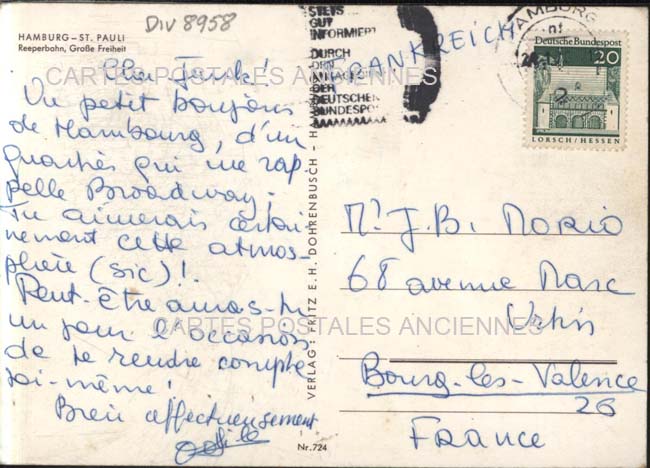 Div 8958
HAMBURG–ST. PAULI
Reeperbahn, Große Freiheit
STETS
GUT
INFORMIERT
DURCH
DEN
DER
DEUTSCHEN
BUNDESPOST
FRANKREICH
HAMBURG
Deutsche Bundespost
20
LORSCH/HESSEN
CARTES POSTALES ANCIENNES
Un petit bonjour
de Hambourg, d'un
quartier qui me rap
pelle Broadway!
Tu aimerais certai-
nement cette atmos-
phère (sic)!
Peut-être auras-tu
un jour l'occasion
de te rendre compte
toi-même!
Bien affectueusement
Odile
VERLAG: FRITZ E. H. DOHRENBUSCH - H
Nr. 724
Mr J.B. MORIO
68 avenue Marc
Urtin
Bourg-les-Valence
26
France
CARTES POSTALES ANCIENNES